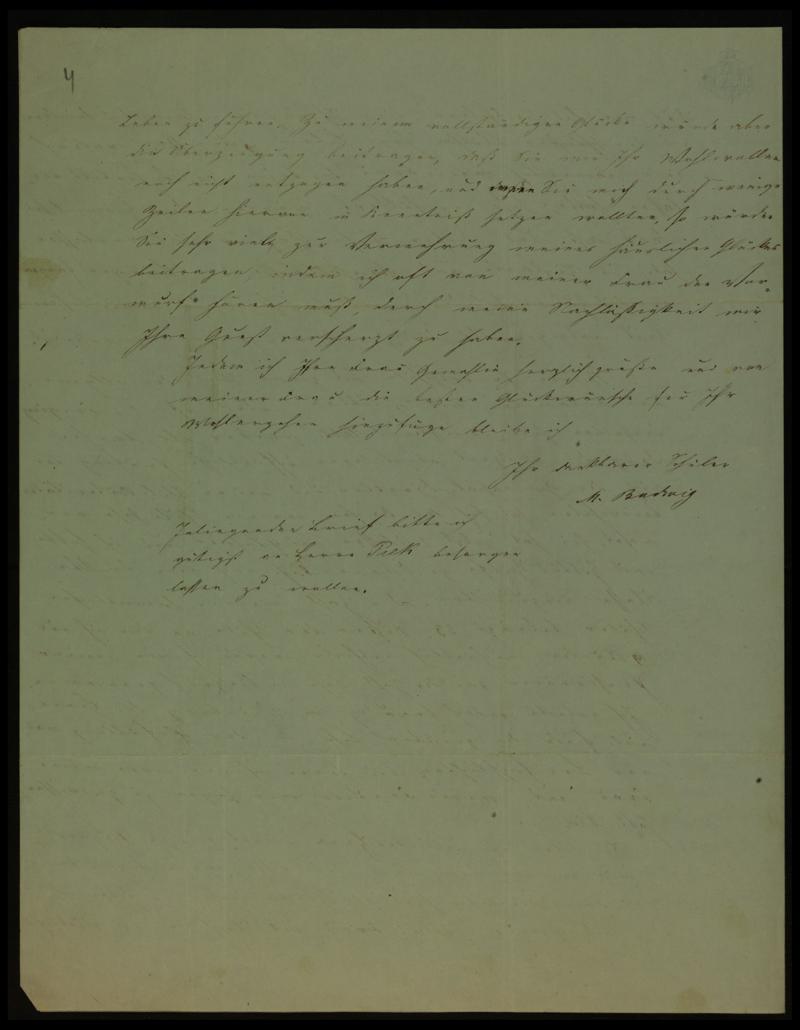 4
Leben zu führen. Zu meinem vollständigen Glücke würde aber
die Überzeugung beitragen, daß Sie mir Ihr Wohlwollen
noch nicht entzogen haben, und Sie mich durch wenige
Zeilen hievon in Kenntniß setzen wollten, so würden
Sie sehr viel zur Vermehrung meines häuslichen Glückes
beitragen indem ich oft von meiner Frau den Vor-
wurf hören muß, durch meine Nachlässigkeit mir
Ihre Gunst verscherzt zu haben.
Indem ich Ihre Frau Gemahlin herzlich grüße und von
meiner Frau die besten Glückwünsche für Ihr
Wohlergehen hinzufüge bleibe ich
Ihr dankbarer Schüler
M. Budwig
Inliegenden Brief bitte ich
gütigst an Herrn Pick besorgen
lassen zu wollen.